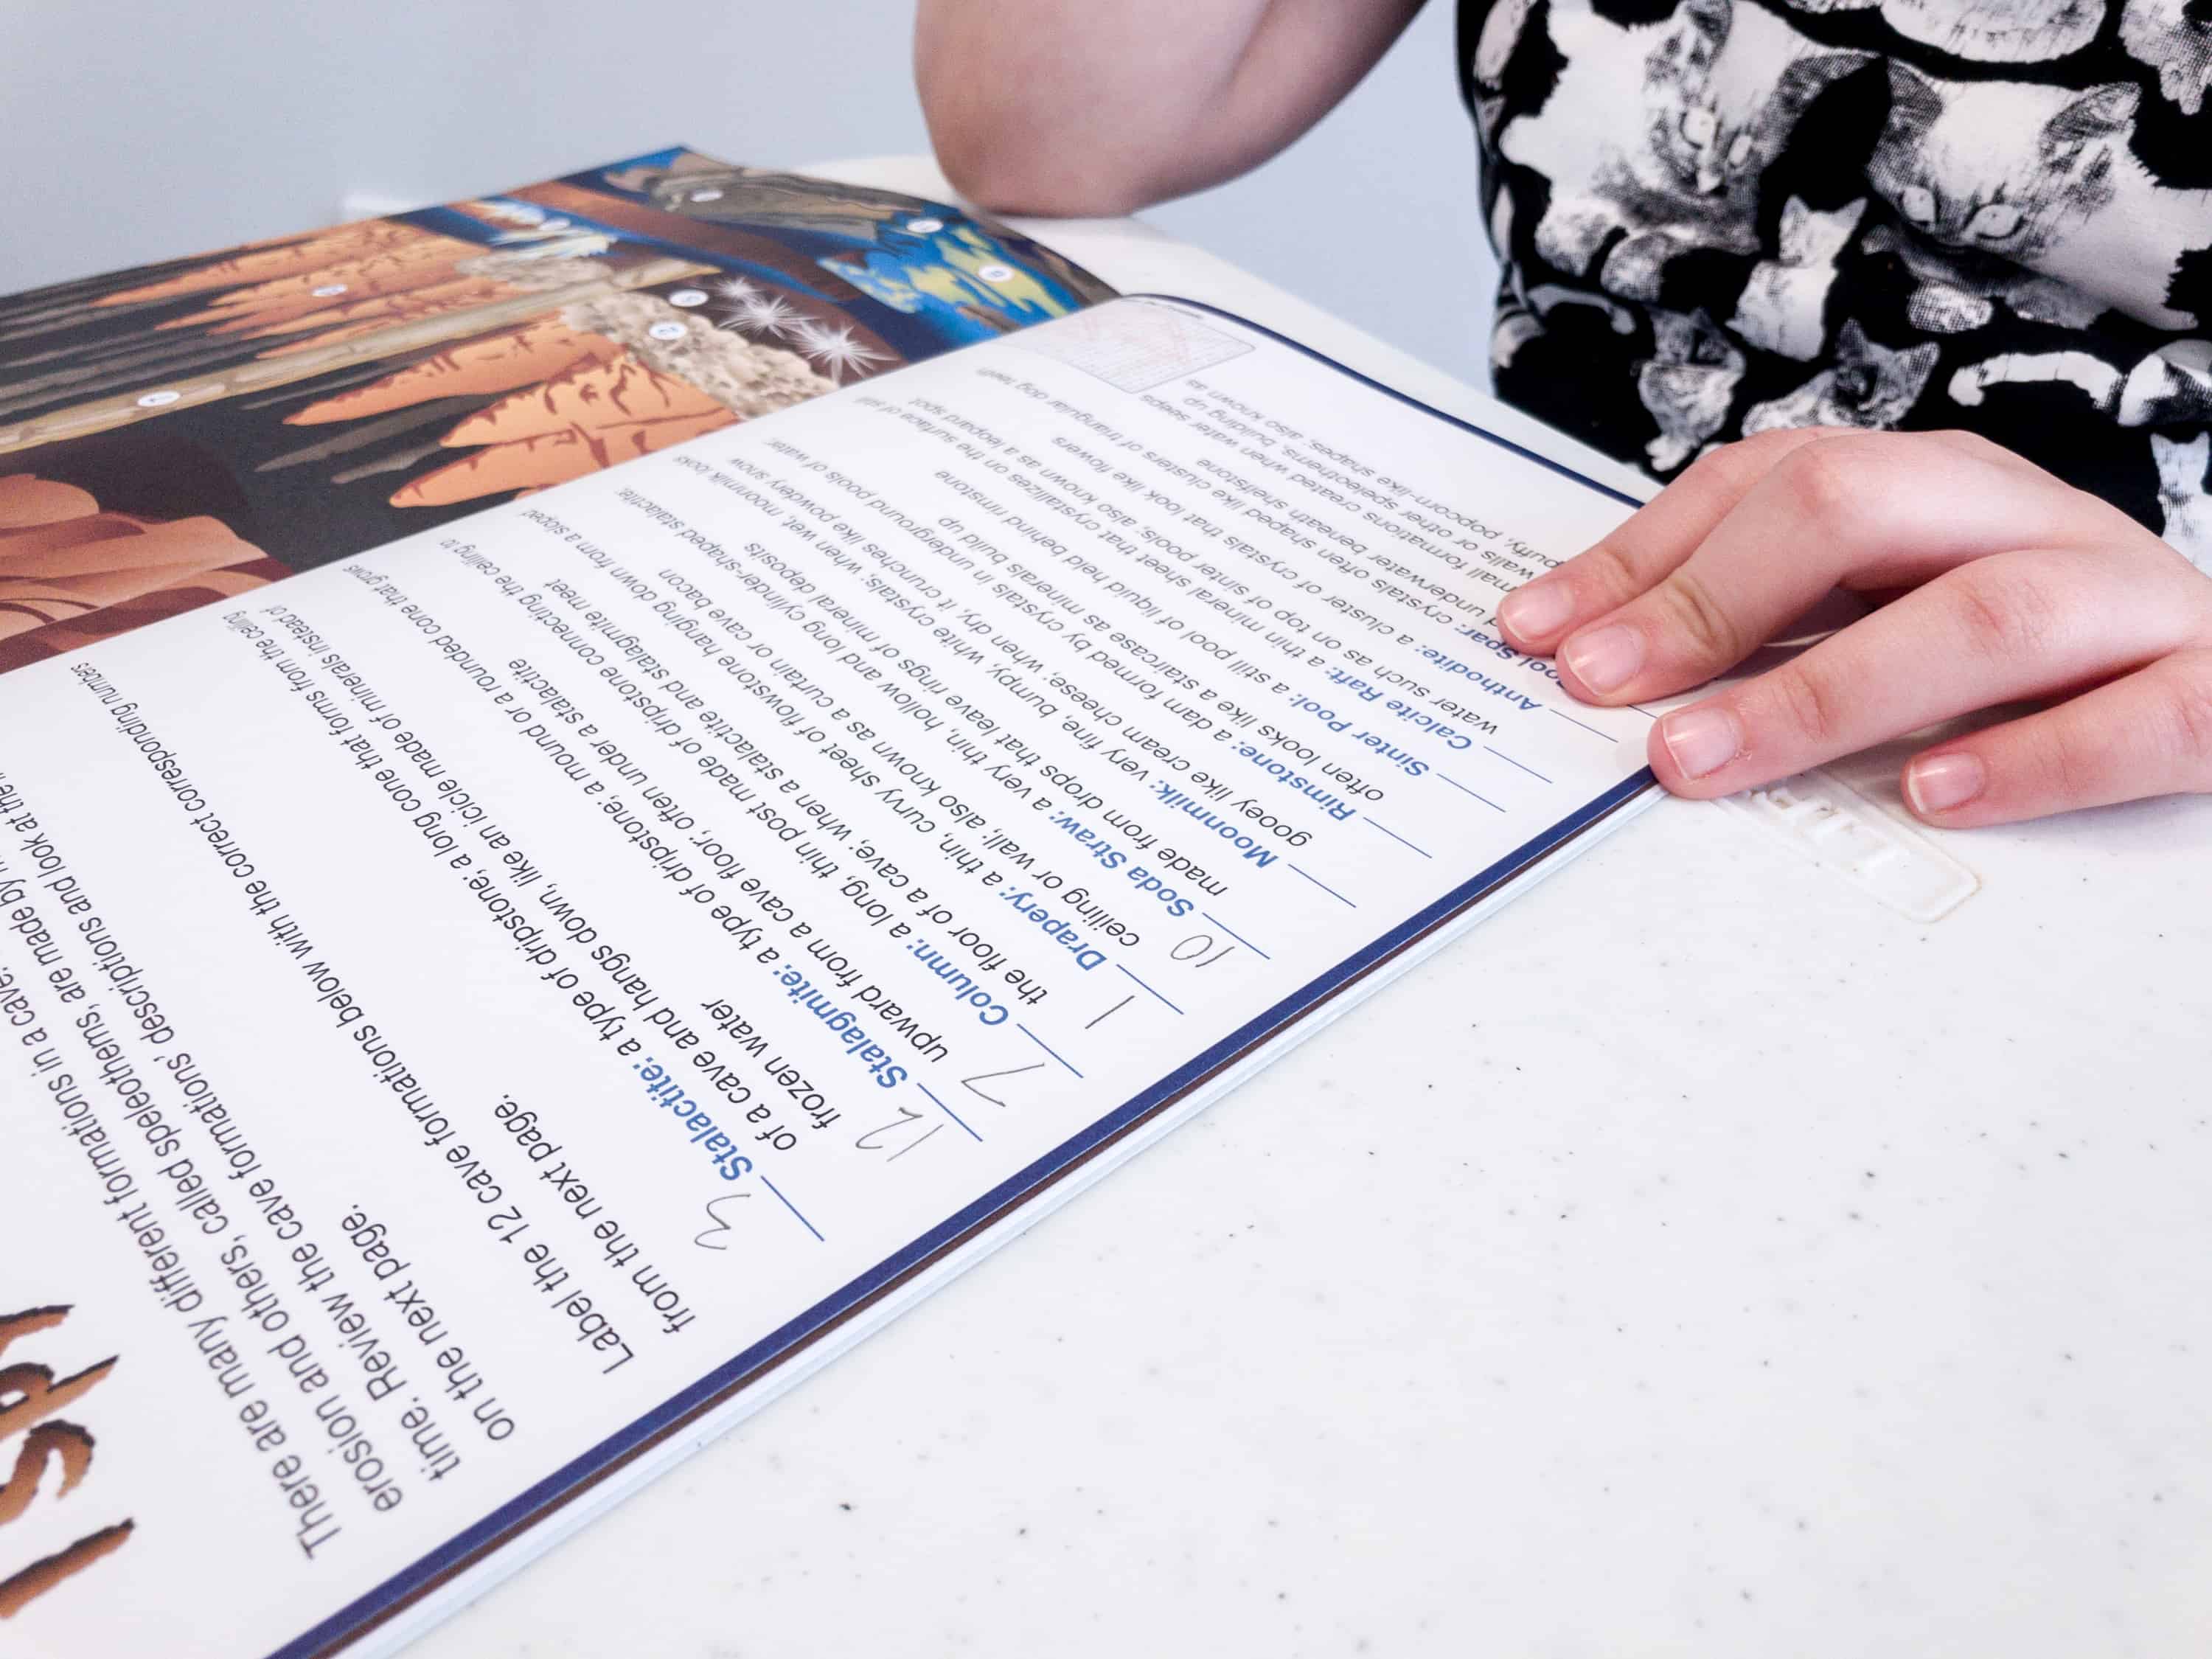 I SP
There are many different formations in a cave,
erosion and others, called speleothems, are made by
time. Review the cave formations' descriptions and look at the
on the next page.
Label the 12 cave formations below with the correct corresponding numbers
from the next page.
3 Stalactite: a type of dripstone; a long cone that forms from the ceiling
of a cave and hangs down, like an icicle made of minerals instead of
frozen water
12 Stalagmite: a type of dripstone; a mound or a rounded cone that grows
upward from a cave floor; often under a stalactite
7 Column: a long, thin post made of dripstone connecting the ceiling to
the floor of a cave; when a stalactite and stalagmite meet
1 Drapery: a thin, curvy sheet of flowstone hanging down from a sloped
ceiling or wall; also known as a curtain or cave bacon
10 Soda Straw: a very thin, hollow and long cylinder-shaped stalactite;
made from drops that leave rings of mineral deposits
Moonmilk: very fine, bumpy, white crystals; when wet, moonmilk looks
gooey like cream cheese; when dry, it crunches like powdery snow
Rimstone: a dam formed by crystals in underground pools of water
often looks like a staircase as minerals build up
Sinter Pool: a still pool of liquid held behind rimstone
Calcite Raft: a thin mineral sheet that crystallizes on the surface of still
water such as on top of sinter pools; also known as a leopard spot
Anthodite: a cluster of crystals that look like flowers
ool Spar: crystals often shaped like clusters of triangular dog teeth
d underwater beneath shelfstone
mall formations created when water seeps
walls or other speleothems, building up
puffy, popcorn-like shapes; also known as